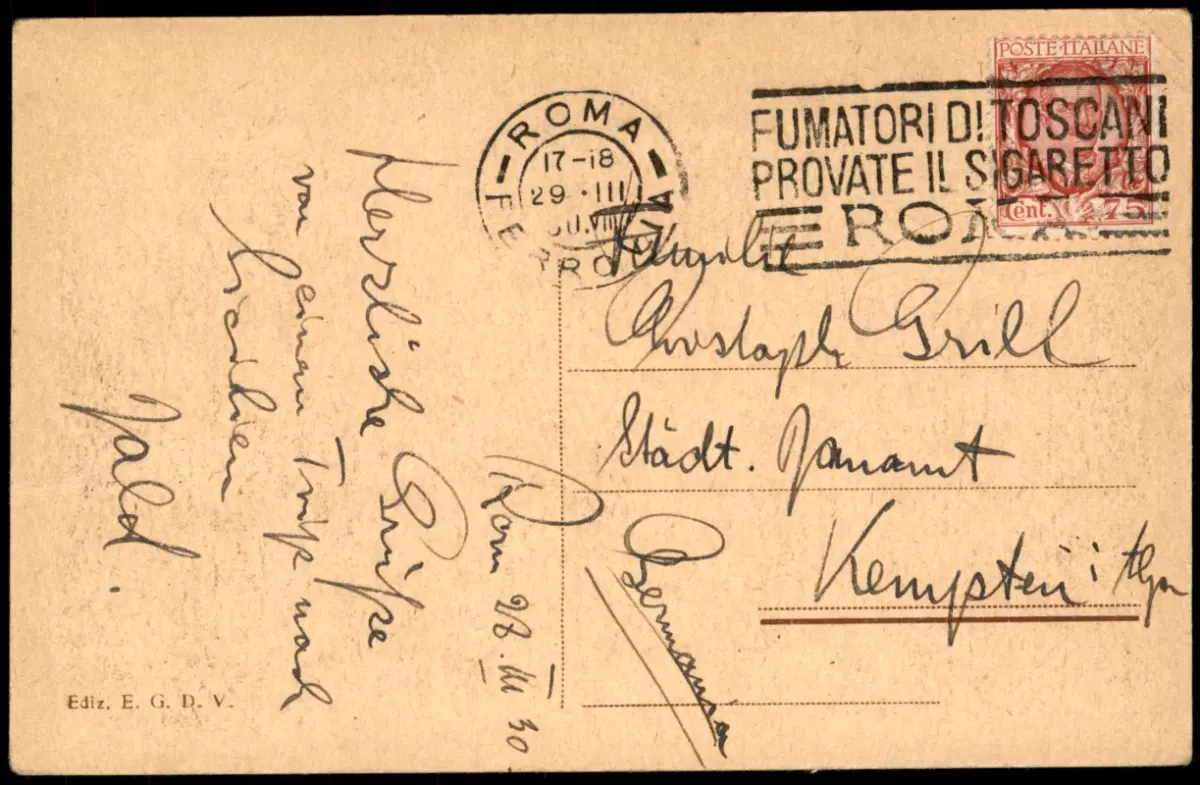 POSTE·ITALIANE
Cent. 75
FUMATORI DI TOSCANI
PROVATE IL SIGARETTO
ROMA
ROMA
17-18
29 · III
30.VIII
FERROVIA
Familie
Christoph Grill
Städt.
Kempten i. Allgäu
Germania
Rom 28.III 30
Herzliche Grüße
von einem Trip nach
Sizilien
Ediz. E. G. D. V.